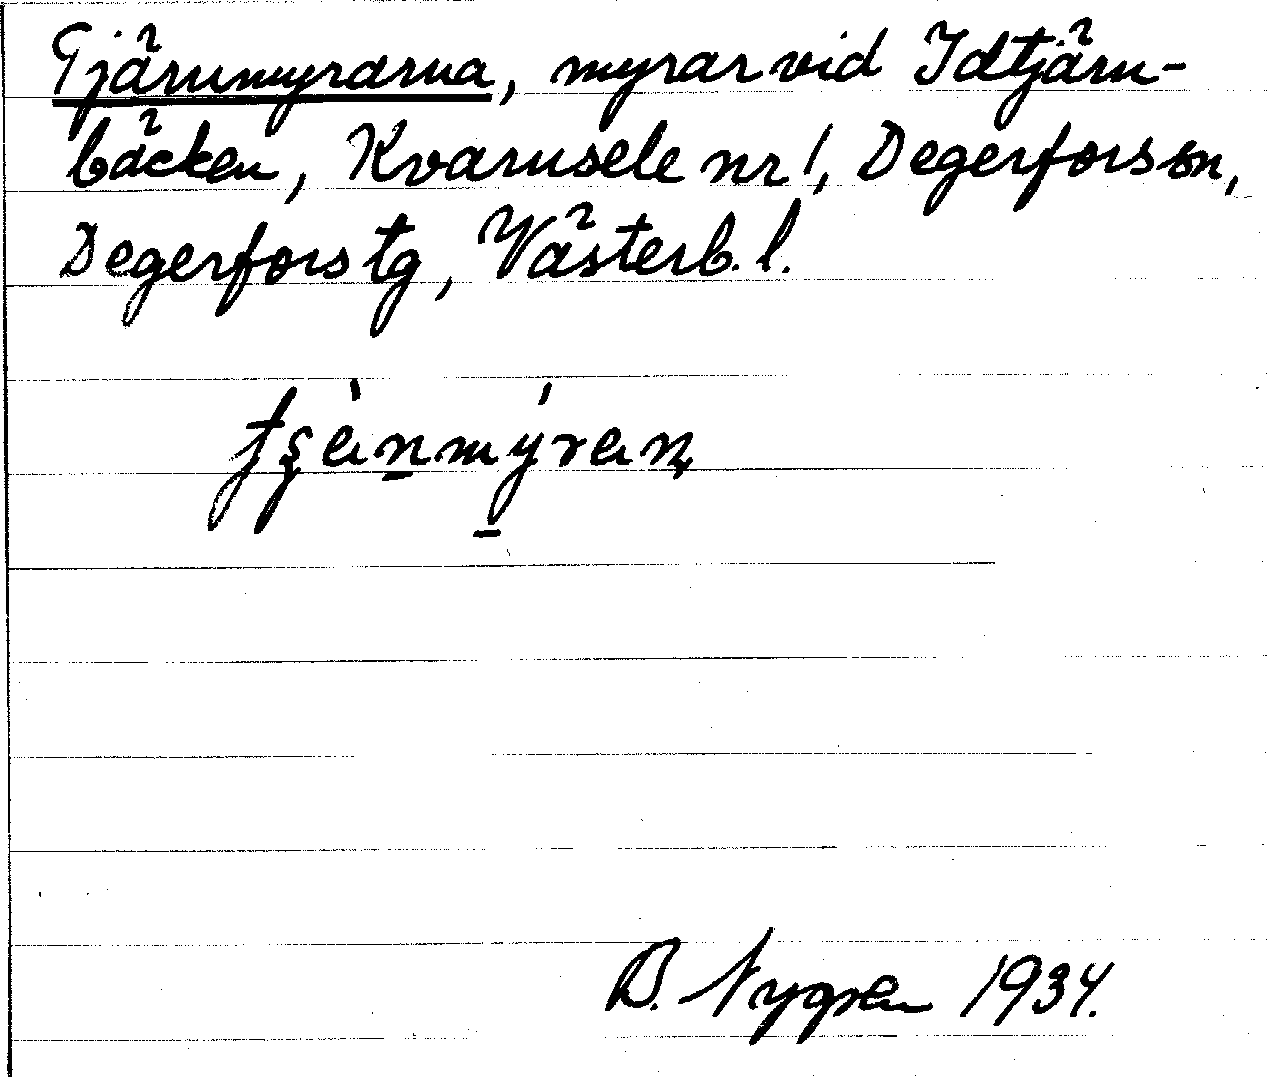 Tjärnmyrarna, myrar vid Idtjärn-
bäcken, Kvarnsele nr 1, Degerfors sn,
Degerfors tg, Västerb. l.
B. Nygren 1934.